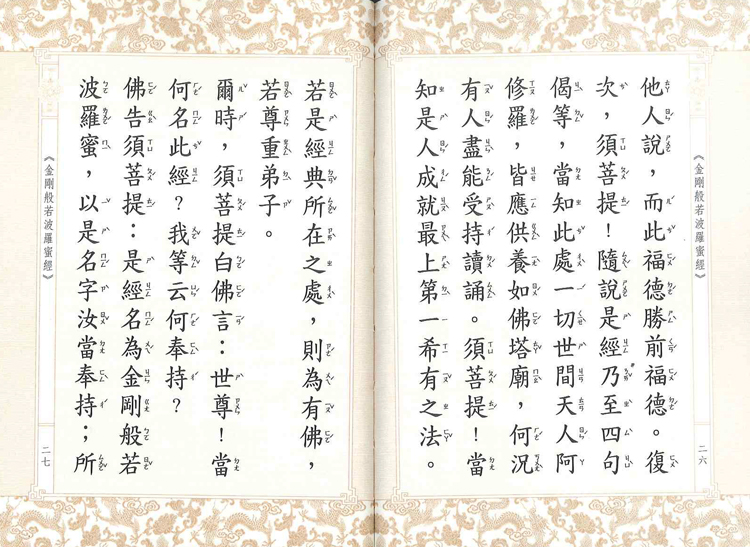 《金剛般若波羅蜜經》
二六
他人說，而此福德勝前福德。復
次，須菩提！隨說是經乃至四句
偈等，當知此處一切世間天人阿
修羅，皆應供養如佛塔廟，何況
有人盡能受持讀誦。須菩提！當
知是人成就最上第一希有之法。
若是經典所在之處，則為有佛，
若尊重弟子。
爾時，須菩提白佛言：世尊！當
何名此經？我等云何奉持？
佛告須菩提：是經名為金剛般若
波羅蜜，以是名字汝當奉持；所
《金剛般若波羅蜜經》
二七